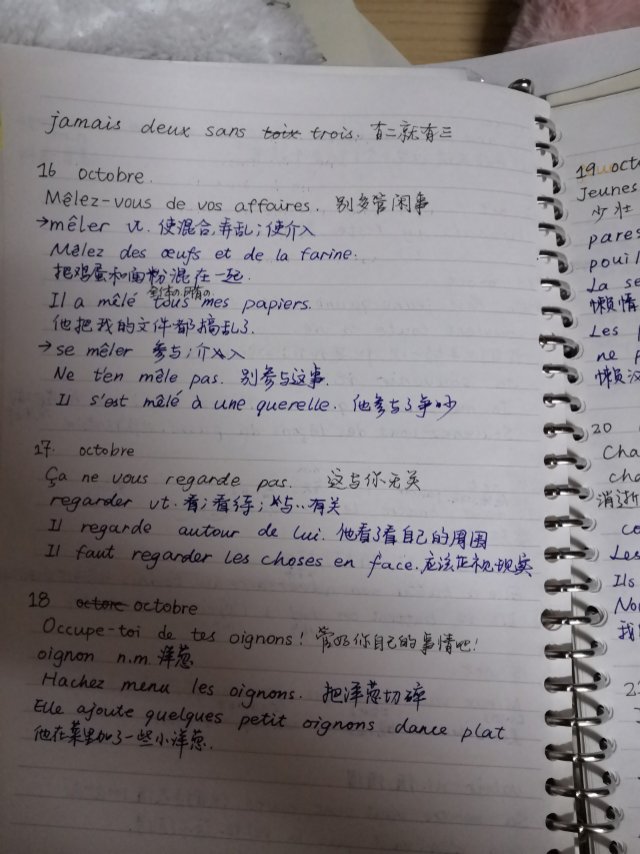 jamais deux sans toix trois. 有二就有三
16 octobre.
Mêlez-vous de vos affaires. 别多管闲事
→mêler vt. 使混合,弄乱;使介入
Mêlez des œufs et de la farine.
把鸡蛋和面粉混在一起.
全体の所有の
Il a mêlé tous mes papiers.
他把我的文件都搞乱了.
→se mêler 参与;介入
Ne t'en mêle pas. 别参与这事.
Il s'est mêlé à une querelle. 他参与了争吵
17. octobre
Ça ne vous regarde pas. 这与你无关
regarder vt. 看;看待;与..有关
Il regarde autour de lui. 他看了看自己的周围
Il faut regarder les choses en face. 应该正视现实
18 octore octobre
Occupe-toi de tes oignons! 管好你自己的事情吧!
oignon n.m. 洋葱
Hachez menu les oignons. 把洋葱切碎
Elle ajoute quelques petit oignons dance plat
他在菜里加了一些小洋葱.
19 octo
Jeunes
少壮
pares
pouil
La se
懒惰
Les p
ne p
懒汉
20
Cha
cha
消逝
co
Les
Ils
No
我